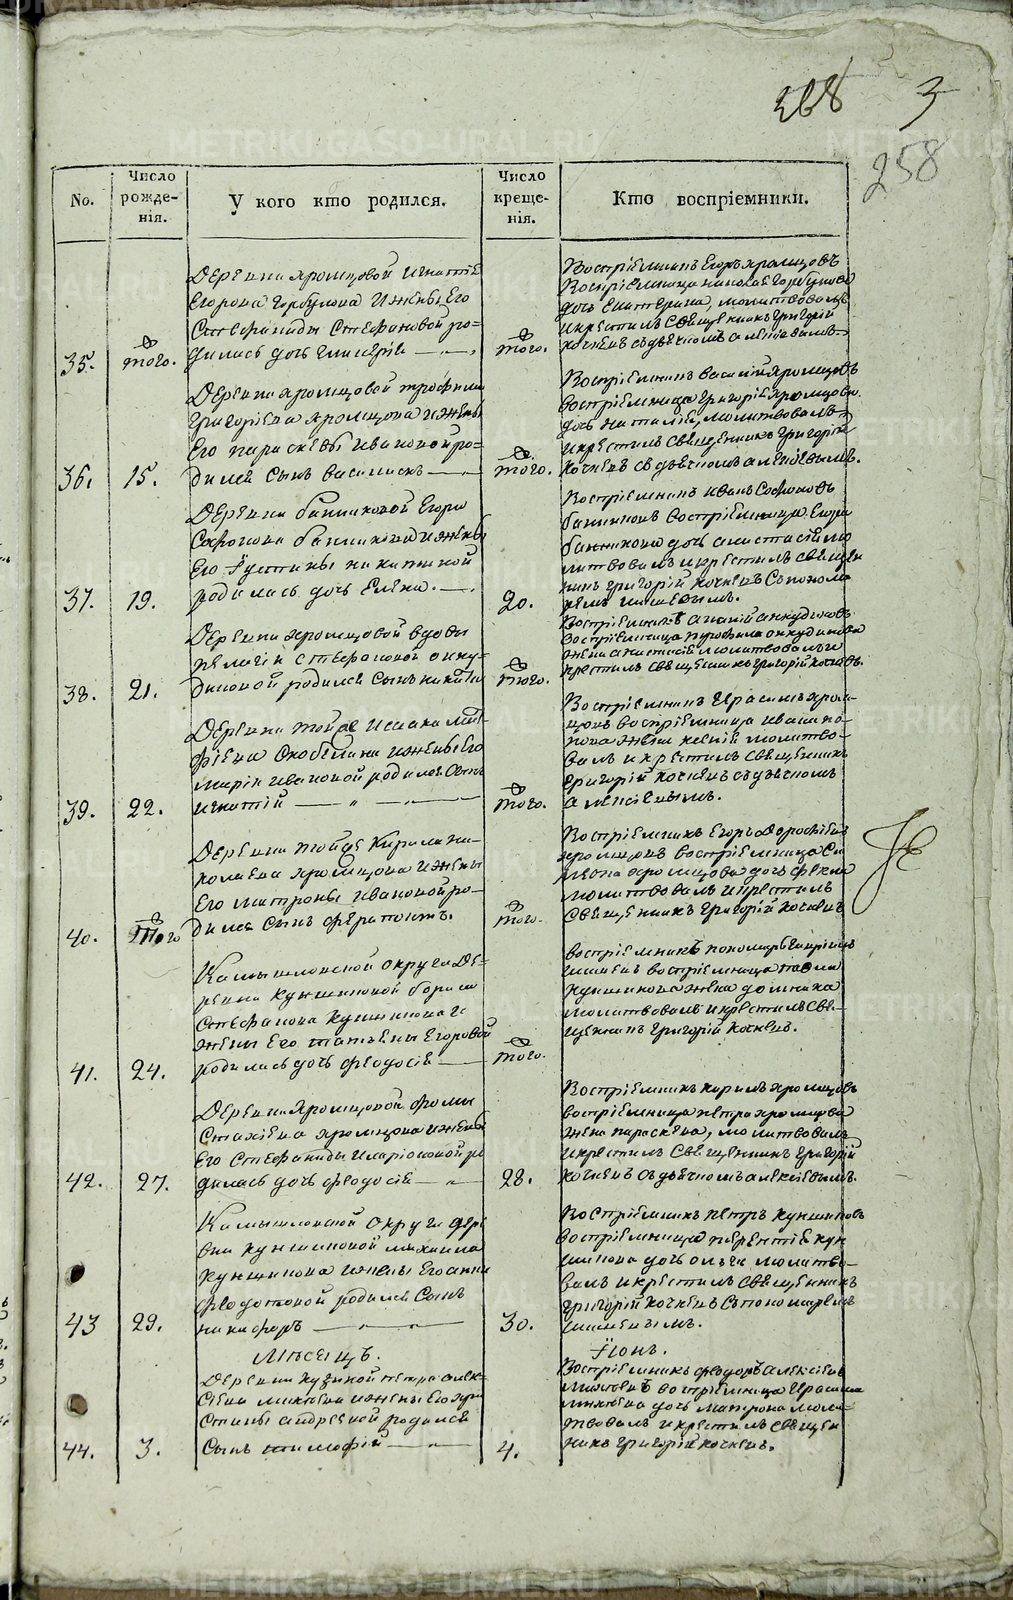 268 3
258
No.
Число рожде-нія.
У кого кто родился.
Число креще-нія.
Кто воспріемники.
35.
того.
Деревни Хромцовой Игнатія
Егорова Горбунова и жены Его
Стефаниды Стефановой ро-
дилась дочь Гликерія
того.
Воспріемникъ Егоръ Хромцовъ
Воспріемница Николая Горбунова
дочь Екатерина, молитвовалъ
и крестилъ Священникъ Григорій
Кочневъ съ дьячкомъ
36.
15.
Деревни Хромцовой Трофима
Григорьева Хромцова и жены
Его Параскевы Ивановой ро-
дился Сынъ Василискъ
того.
Воспріемникъ Василій Хромцовъ
воспріемница Григорія Хромцова
дочь Наталія, молитвовалъ
и крестилъ Священникъ Григорій
Кочневъ съ дьячкомъ Алексіевымъ.
37.
19.
Деревни Банниковой Егора
Софонова Банникова и жены
Его Іустины Никитиной
родилась дочь Елена.
20.
Воспріемникъ Иванъ Софоновъ
Банниковъ воспріемница Егора
Банникова дочь Анастасія мо
литвовалъ и крестилъ священ
никъ Григорій Кочневъ съ понома
ремъ
38.
21.
Деревни Хромцовой вдовы
Пелагіи Стефановой Анку-
диновой родился Сынъ Никита
того.
Воспріемникъ Ананій Анкудиновъ
воспріемница Анкудинова
жена Анастасія молитвовалъ и
крестилъ священникъ Григорій Кочневъ.
39.
22.
Деревни тойже Исаака Мат-
фіева Скобелина и жены Его
Маріи Ивановой родился Сынъ
Игнатій
того.
Воспріемникъ Герасимъ Хром-
цовъ воспріемница Ивана по-
пова жена Ксенія молитво-
валъ и крестилъ священникъ
Григорій Кочневъ съ дьячкомъ
Алексіевымъ.
40.
того
Деревни тойже Кирила Ни-
колаева Хромцова и жены
Его Матроны Ивановой ро-
дился Сынъ Ферапонтъ.
того.
Воспріемникъ Егоръ Дорофеевъ
Хромцовъ воспріемница Си
меона Хромцова дочь Фекла
молитвовалъ и крестилъ
Священникъ Григорій Кочневъ
41.
24.
Камышловской округи Де-
ревни Кункиновой Бориса
Стефанова Кункинова и
жены Его Татьяны Егоровой
родилась дочь Феодосія
того.
воспріемникъ пономарь
воспріемница
Кункинова жена Домника
молитвовалъ и крестилъ Свя-
щенникъ Григорій Кочневъ.
42.
27.
Деревни Хромцовой Фомы
Стахіева Хромцова и жены
Его Стефаниды Иларіоновой ро
дилась дочь Феодосія
28.
Воспріемникъ Карпъ Хромцовъ
воспріемница Петра Хромцова
жена Параскева, молитвовалъ
и крестилъ Священникъ Григорій
Кочневъ съ дьячкомъ Алексіевымъ.
43
29.
Камышловской округи дере
вни Кункиновой Михаила
Кункинова и жены Его Анны
Федотовой родился Сынъ
Никифоръ
30.
Воспріемникъ Петръ Кункиновъ
воспріемница Терентія Кун
кинова дочь Ольга молитво-
валъ и крестилъ Священникъ
Григорій Кочневъ съ пономаремъ
Мѣсецъ.
Іюнь.
44.
3.
Деревни Кузиной Петра Алек-
сіева Михѣева и жены Его Хри
стины Андреевой родился
Сынъ Тимофій
4.
Воспріемникъ Феодоръ Алексіевъ
Михѣевъ воспріемница Герасима
Михѣева дочь Матрона моли-
твовалъ и крестилъ Священ
никъ Григорій Кочневъ.
METRIKI.GASO-URAL.RU